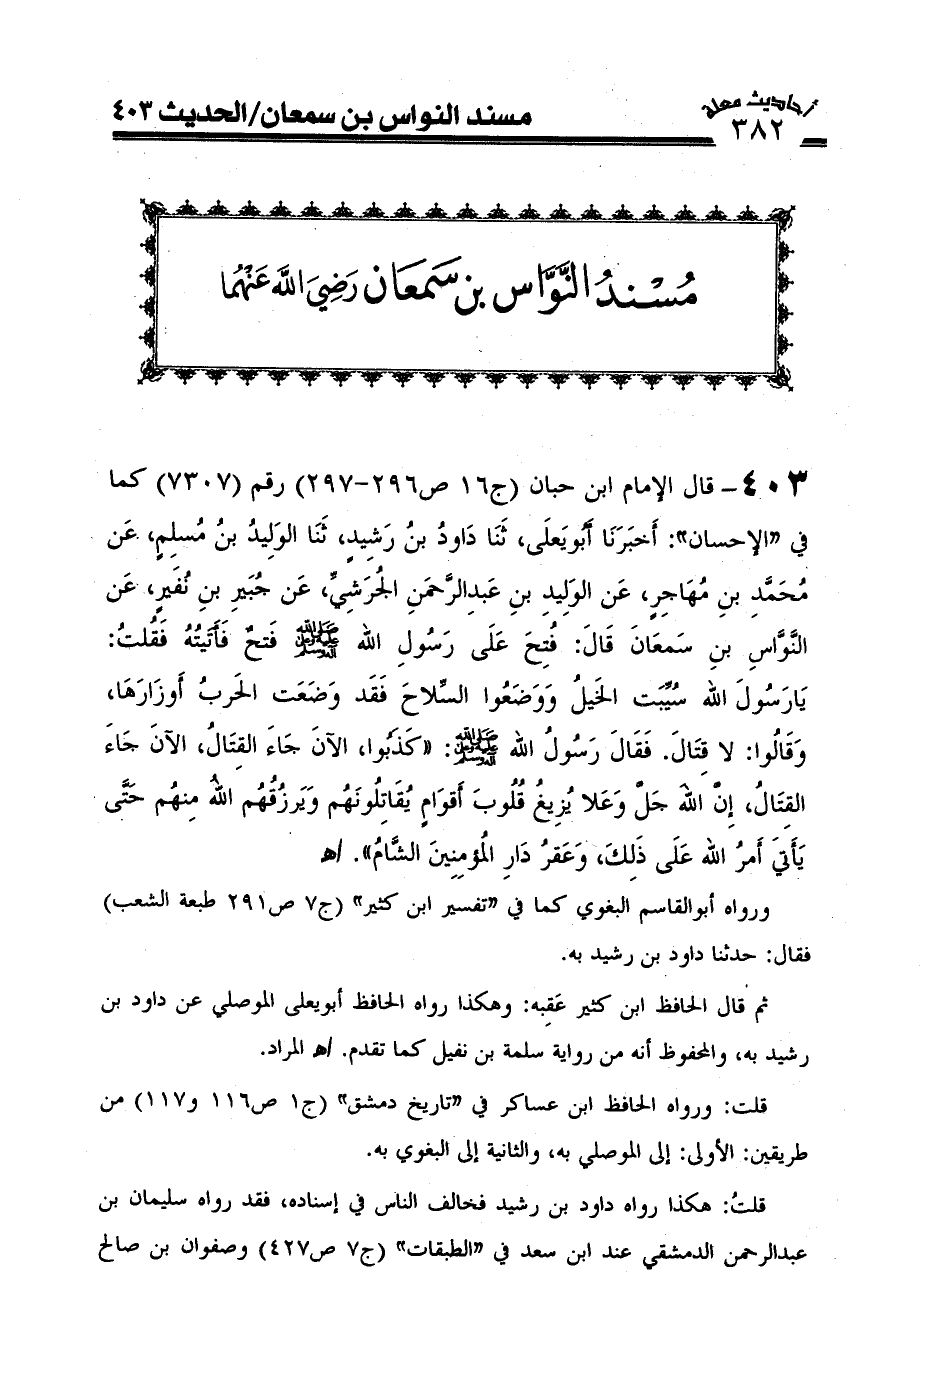 أحاديث معلة
٣٨٢
مسند النواس بن سمعان/الحديث ٤٠٣
مُسْنَدُ النَّوَّاس بن سَمعَان رَضِيَ اللَّه عَنْهُمَا
٤٠٣ـ قال الإمام ابن حبان (ج١٦ ص٢٩٦-٢٩٧) رقم (٧٣٠٧) كما
في «الإحسان»: أَخبَرَنَا أَبُويَعلَى، ثَنَا دَاودُ بنُ رَشِيدٍ، ثَنَا الوَلِيدُ بنُ مُسلِمٍ، عَن
مُحَمَّدِ بنِ مُهَاجِرٍ، عَن الوَلِيدِ بنِ عَبدِالرَّحمَنِ الجُرَشِيِّ، عَن جُبَيرِ بنِ نُفَيرٍ، عَن
النَّوَّاسِ بنِ سَمعَانَ قَالَ: فُتِحَ عَلَى رَسُولِ الله ﷺ فَتحٌ فَأَتَيتُهُ فَقُلتُ:
يَارَسُولَ الله سُيِّبَت الخَيلُ وَوَضَعُوا السِّلاحَ فَقَد وَضَعَت الحَربُ أَوزَارَهَا،
وَقَالُوا: لا قِتَالَ. فَقَالَ رَسُولُ الله ﷺ: «كَذَبُوا، الآنَ جَاءَ القِتَالُ، الآنَ جَاءَ
القِتَالُ، إِنَّ اللهَ جَلَّ وَعَلا يُزِيغُ قُلُوبَ أَقوَامٍ يُقَاتِلُونَهُم وَيَرزُقُهُم اللهُ مِنهُم حَتَّى
يَأتِيَ أَمرُ الله عَلَى ذَلِكَ، وَعَقرُ دَارِ المُؤمِنِينَ الشَّامُ». اهـ
ورواه أبوالقاسم البغوي كما في «تفسير ابن كثير» (ج٧ ص٢٩١ طبعة الشعب)
فقال: حدثنا داود بن رشيد به.
ثم قال الحافظ ابن كثير عَقِبه: وهكذا رواه الحافظ أبويعلى الموصلي عن داود بن
رشيد به، والمحفوظ أنه من رواية سلمة بن نفيل كما تقدم. اهـ المراد.
قلت: ورواه الحافظ ابن عساكر في «تاريخ دمشق» (ج١ ص١١٦ و١١٧) من
طريقين: الأولى: إلى الموصلي به، والثانية إلى البغوي به.
قلتُ: هكذا رواه داود بن رشيد فخالف الناس في إسناده، فقد رواه سليمان بن
عبدالرحمن الدمشقي عند ابن سعد في «الطبقات» (ج٧ ص٤٢٧) وصفوان بن صالح